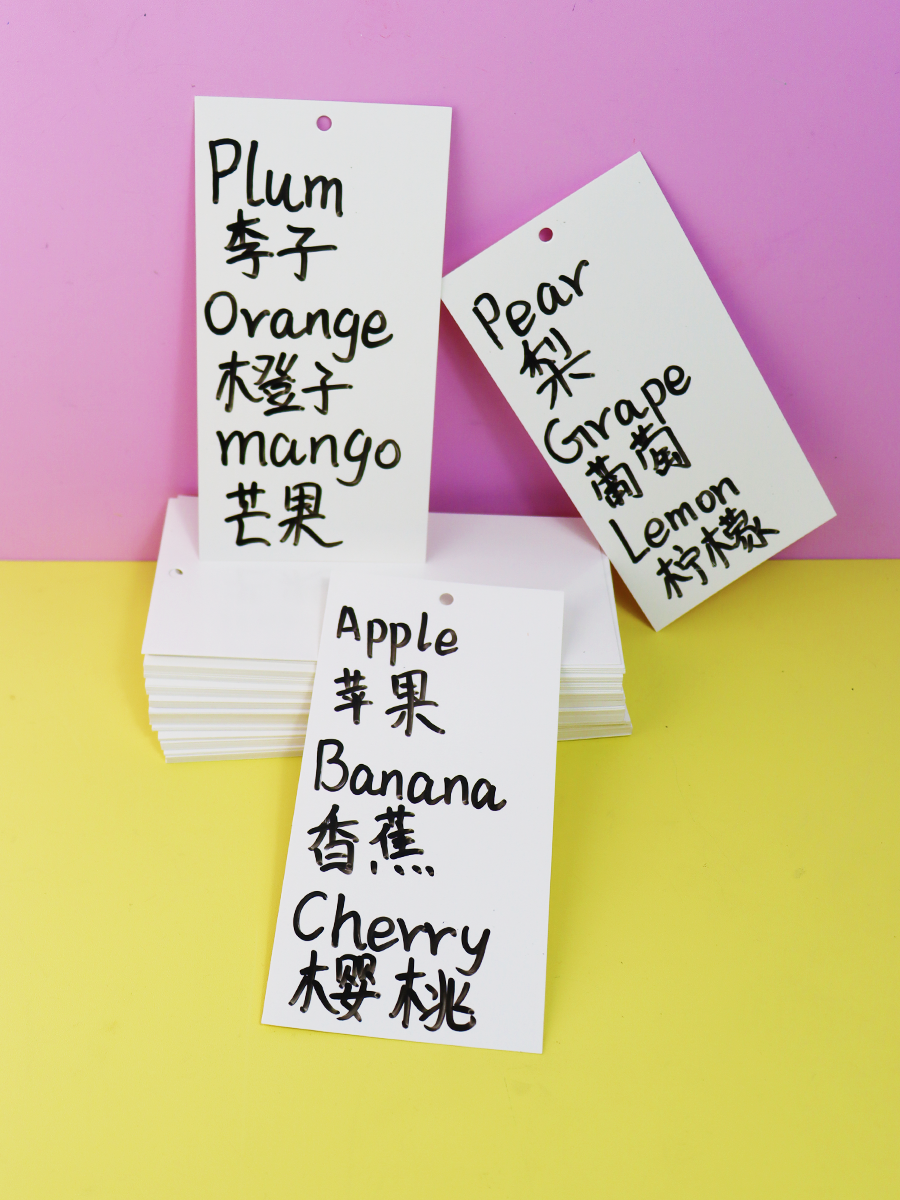 Plum
李子
Orange
橙子
mango
芒果
Pear
梨
Grape
葡萄
Lemon
柠檬
Apple
苹果
Banana
香蕉
Cherry
樱桃